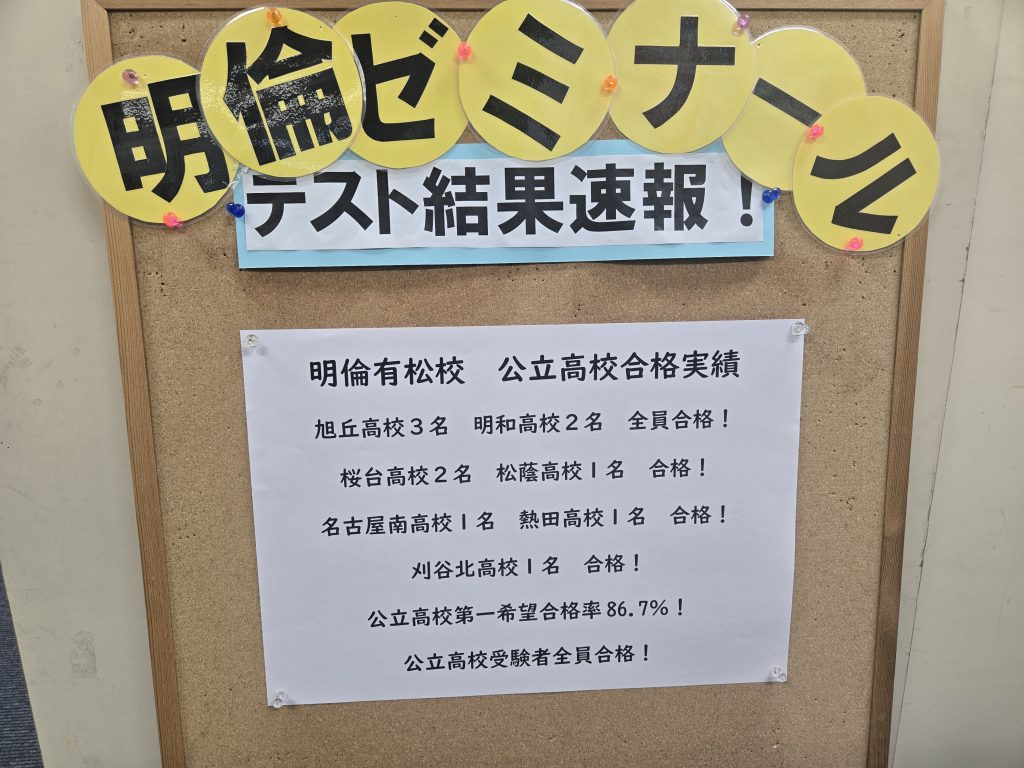 明倫ゼミナール
テスト結果速報！
明倫有松校　公立高校合格実績
旭丘高校３名　明和高校２名　全員合格！
桜台高校２名　松蔭高校１名　合格！
名古屋南高校１名　熱田高校１名　合格！
刈谷北高校１名　合格！
公立高校第一希望合格率86.7%！
公立高校受験者全員合格！